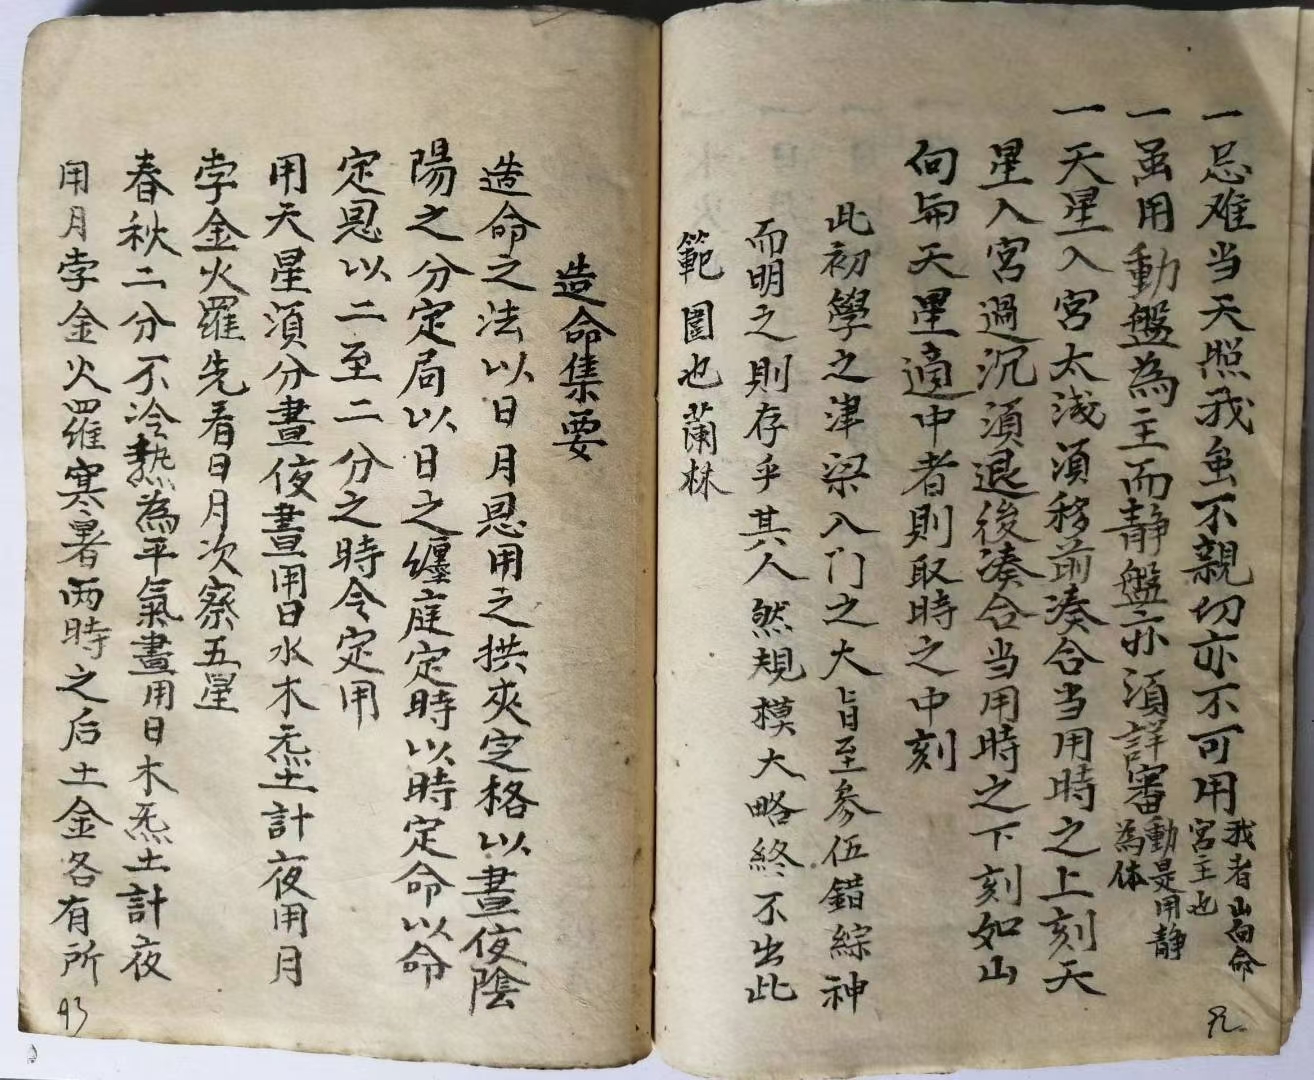 一忌难当天照我虽不親切亦不可用我者山向命宮主也
一虽用動盤為主而静盤亦須詳審動是用静為体
一天星入宮太浅須移前凑合当用時之上刻天
星入宮過沉須退後凑合当用時之下刻如山
向与天星適中者則取時之中刻
此初學之津梁入门之大旨至参伍錯綜神
而明之則存乎其人然規模大略終不出此
範圍也蘭林
九二
造命集要
造命之法以日月恩用之拱夾定格以晝夜陰
陽之分定局以日之纏度定時以時定命以命
定恩以二至二分之時令定用
用天星須分晝夜晝用日水木炁土計夜用月
孛金火羅先看日月次察五星
春秋二分不冷熱為平氣晝用日木炁土計夜
用月孛金火羅寒暑两時之后土金各有所
93